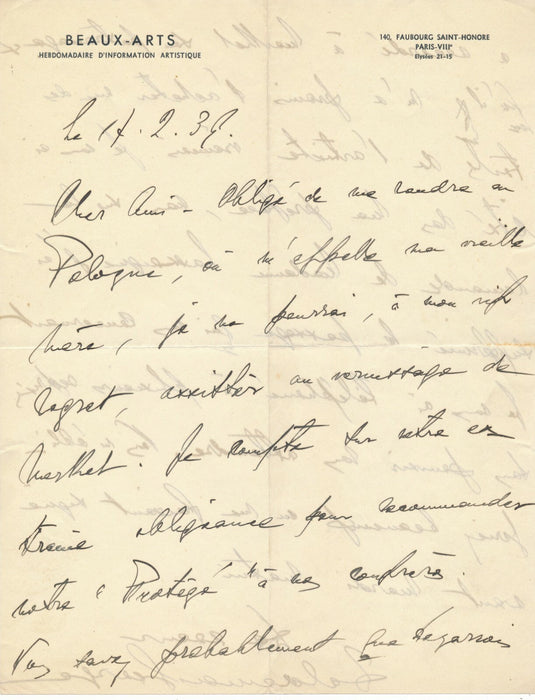 BEAUX-ARTS
HEBDOMADAIRE D'INFORMATION ARTISTIQUE
140, FAUBOURG SAINT-HONORE
PARIS-VIIIe
Elysées 21-15
Le 17. 2. 37.
Cher Ami - Obligé de me rendre en
Pologne, où m'appelle ma vieille
mère, je ne pourrai, à mon vif
regret, assister au vernissage de
. Je compte sur votre ex
trême obligeance pour recommander
notre "Protégé" à nos confrères.
Vous savez probablement que